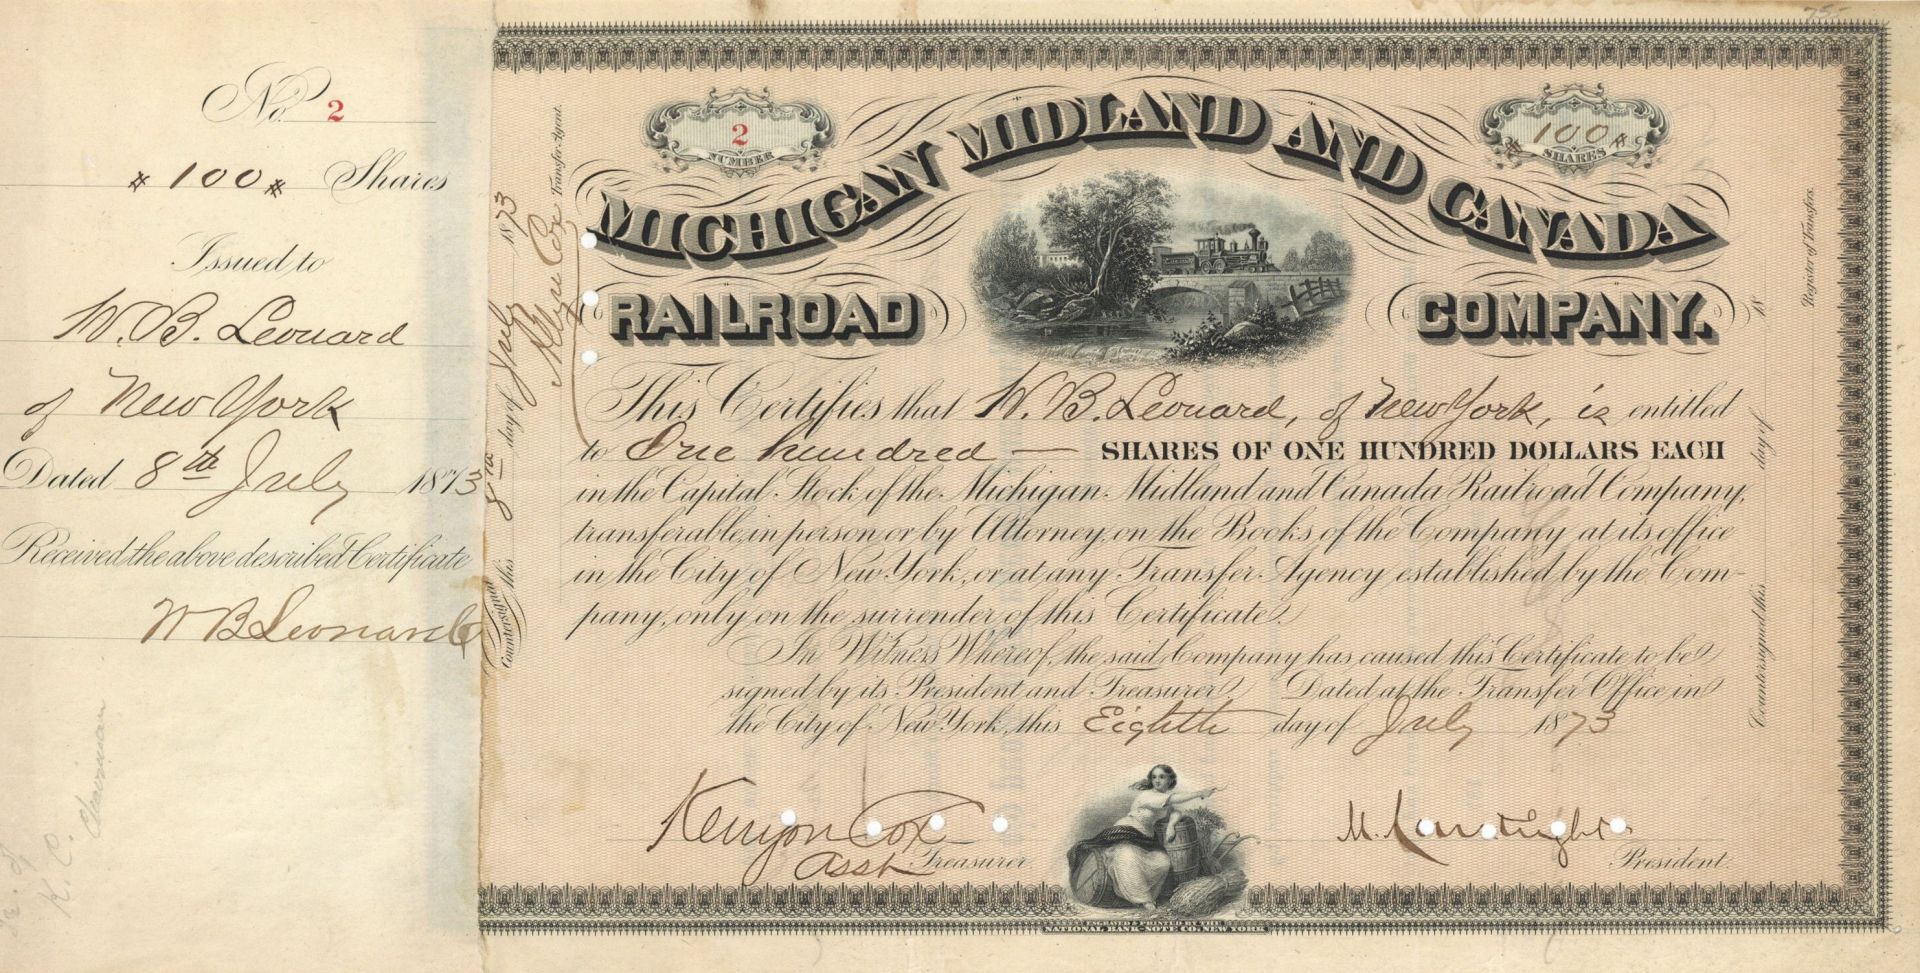 No. 2
# 100 # Shares
Issued to
W. B. Leonard
of New York
Dated 8th July 1873
Received the above described Certificate
W B Leonard
75-
2
NUMBER
# 100 #
SHARES
MICHIGAN MIDLAND AND CANADA
RAILROAD COMPANY.
This Certifies that W. B. Leonard, of New York, is entitled
to One hundred — SHARES OF ONE HUNDRED DOLLARS EACH
in the Capital Stock of the Michigan Midland and Canada Railroad Company,
transferable in person or by Attorney, on the Books of the Company at its office
in the City of New York, or at any Transfer Agency established by the Com-
pany, only on the surrender of this Certificate.
In Witness Whereof, the said Company has caused this Certificate to be
signed by its President and Treasurer. Dated at the Transfer Office in
the City of New York, this Eighth day of July 1873
Kenyon Cox
Asst Treasurer.
President.
ENGRAVED & PRINTED BY THE
NATIONAL BANK-NOTE CO. NEW YORK
Countersigned this 8th day of July 1873
Kenyon Cox Transfer Agent.
Countersigned this day of 18
Register of Transfers.